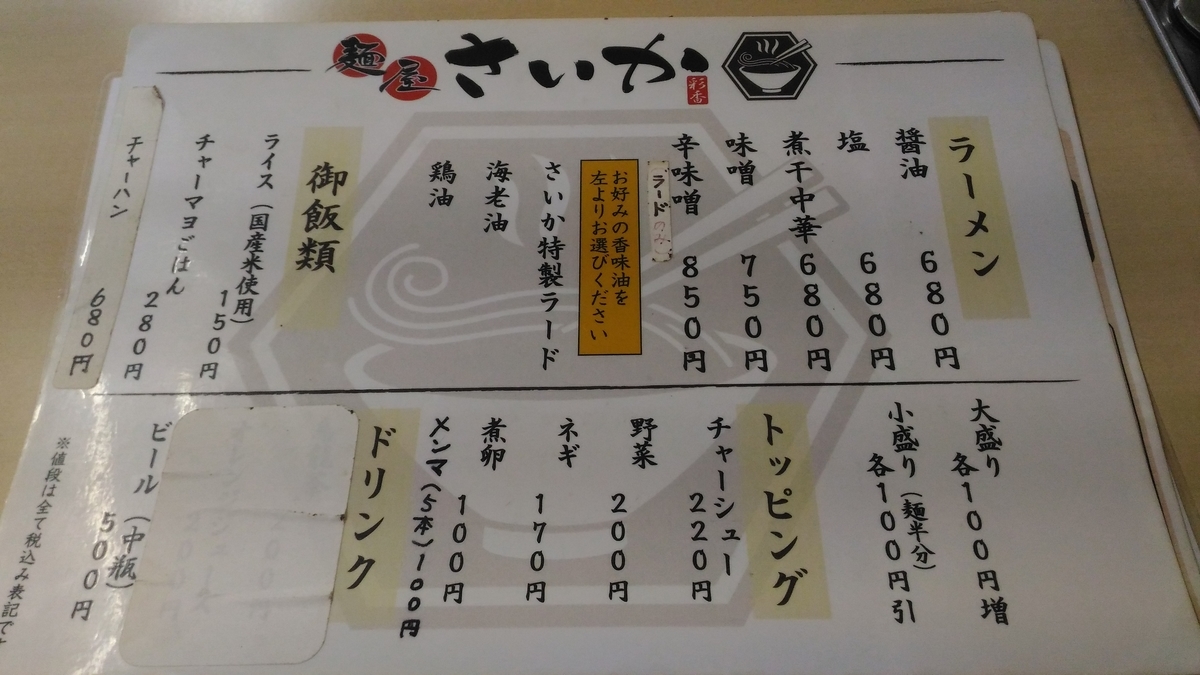 麺屋 さいか
彩香
ラーメン
醤油 680円
塩 680円
煮干中華 680円
味噌 750円
辛味噌 850円
ラードのみ
お好みの香味油を
左よりお選びください
さいか特製ラード
海老油
鶏油
御飯類
ライス（国産米使用） 150円
チャーマヨごはん 280円
チャーハン 680円
大盛り 各100円増
小盛り（麺半分） 各100円引
トッピング
チャーシュー 220円
野菜 200円
ネギ 170円
煮卵 100円
メンマ（5本）100円
ドリンク
ビール（中瓶） 500円
※値段は全て税込み表記で